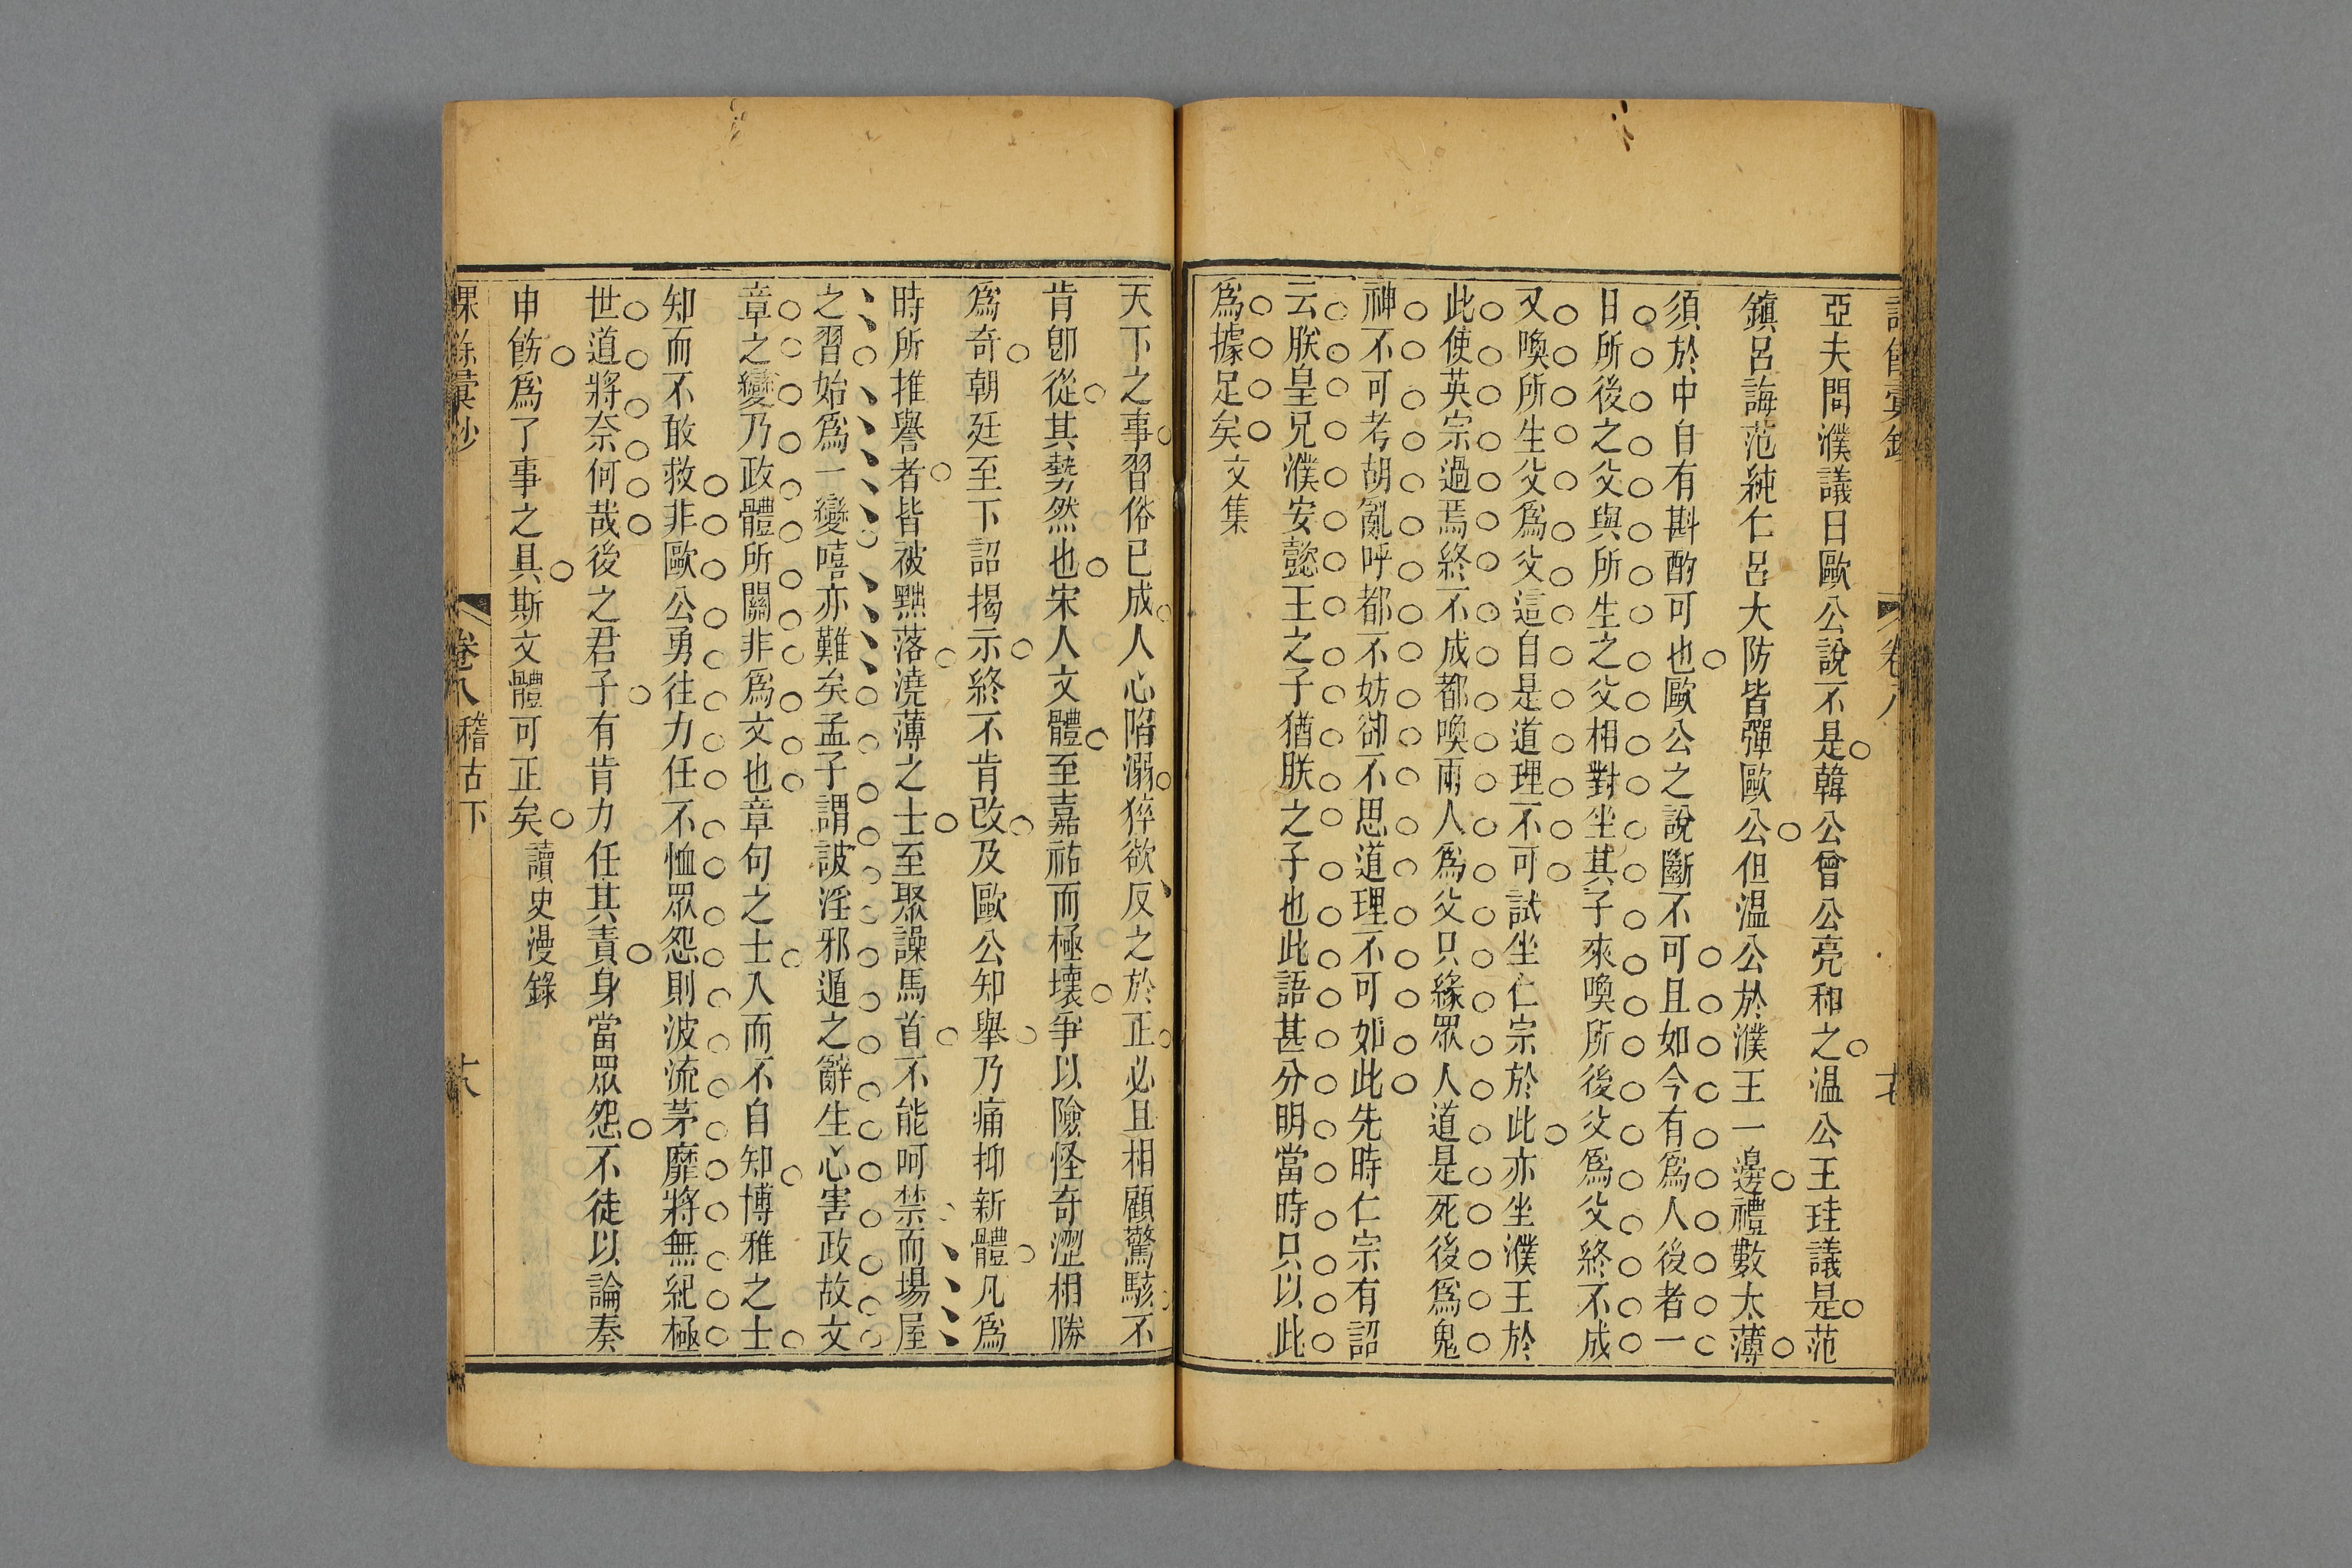 卷八
亞夫問濮議曰歐公說不是韓公曾公亮和之温公王珪議是范
鎮呂誨范純仁呂大防皆彈歐公但温公於濮王一邊禮數太薄
須於中自有斟酌可也歐公之說斷不可且如今有爲人後者一
日所後之父與所生之父相對坐其子來喚所後父爲父終不成
又喚所生父爲父這自是道理不可試坐仁宗於此亦坐濮王於
此使英宗過焉終不成都喚兩人爲父只緣眾人道是死後爲鬼
神不可考胡亂呼都不妨卻不思道理不可如此先時仁宗有詔
云朕皇兄濮安懿王之子猶朕之子也此語甚分明當時只以此
爲據足矣文集
天下之事習俗已成人心陷溺猝欲反之於正必且相顧驚駭不
肯卽從其勢然也宋人文體至嘉祐而極壞爭以險怪奇澀相勝
爲奇朝廷至下詔揭示終不肯改及歐公知舉乃痛抑新體凡爲
時所推譽者皆被黜落澆薄之士至聚譟馬首不能呵禁而場屋
之習始爲一變嘻亦難矣孟子謂詖淫邪遁之辭生心害政故文
章之變乃政體所關非爲文也章句之士人而不自知博雅之士
知而不敢救非歐公勇往力任不恤眾怨則波流茅靡將無紀極
世道將奈何哉後之君子有肯力任其責身當眾怨不徒以論奏
申飭爲了事之具斯文體可正矣讀史漫錄
課餘彙鈔 卷八 稽古下 十八